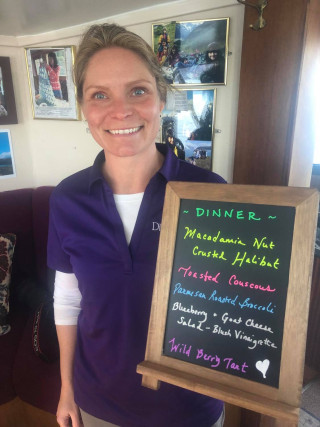 ~ DINNER ~
Macadamia Nut
Crusted Halibut
Toasted Couscous
Parmesan Roasted Broccoli
Blueberry + Goat Cheese
Salad - Blush Vinaigrette
Wild Berry Tart